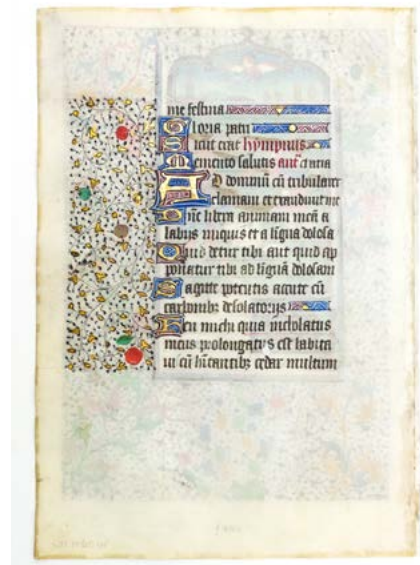 me festina
Gloria patri
Sicut erat hympnus
Memento salutis añt
Ad dominū cū tribularer
clamaui et exaudiuit me
Dñe libera animam meā a
labiis iniquis et a līgua dolosa
Quid detur tibi aut quid ap
ponatur tibi ad līguā dolosam
Sagitte potētis acute cū
carbonibꝫ desolatorijs
Heu michi quia incolatus
meus prolongatus est habita
ui cū hītantibꝫ cedar multum